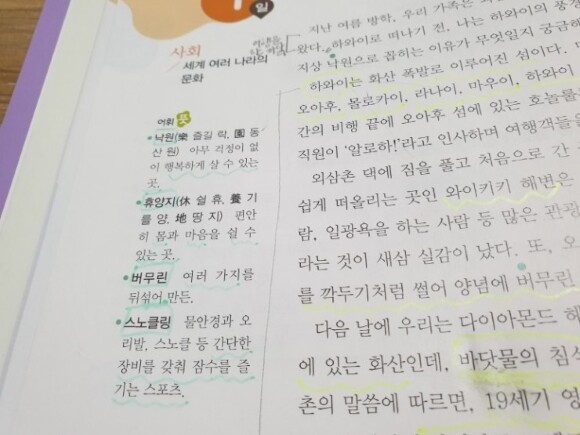 1일
사회
세계 여러 나라의
문화
어휘 풀
낙원(樂 즐길 락, 園 동
산 원) 아무 걱정이 없
이 행복하게 살 수 있는
곳.
휴양지(休 쉴 휴, 養 기
를 양, 地 땅 지) 편안
히 몸과 마음을 쉴 수
있는 곳.
버무린 여러 가지를
뒤섞어 만든.
스노클링 물안경과 오
리발, 스노클 등 간단한
장비를 갖춰 잠수를 즐
기는 스포츠.
지난 여름 방학, 우리 가족은
왔다. 하와이로 떠나기 전, 나는 하와이의 풍경
지상 낙원으로 꼽히는 이유가 무엇일지 궁금해
하와이는 화산 폭발로 이루어진 섬이다.
오아후, 몰로카이, 라나이, 마우이, 하와이
간의 비행 끝에 오아후 섬에 있는 호놀룰
직원이 '알로하!'라고 인사하며 여행객들을
외삼촌 댁에 짐을 풀고 처음으로 간
쉽게 떠올리는 곳인 와이키키 해변은
람, 일광욕을 하는 사람 등 많은 관광
라는 것이 새삼 실감이 났다. 또, 오
를 깍두기처럼 썰어 양념에 버무린
다음 날에 우리는 다이아몬드 헤
에 있는 화산인데, 바닷물의 침식
촌의 말씀에 따르면, 19세기 영